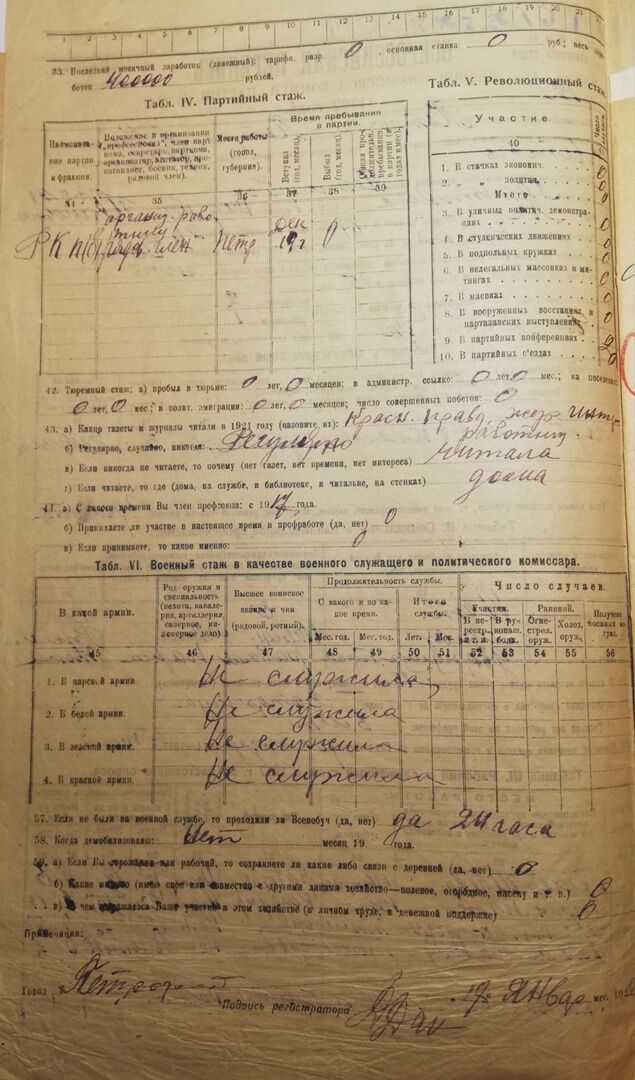 1 2 3 4 5 6 7 8 9 10 11 12 13 14 15 16 17 18 19 20 21
33. Последний месячный заработок (денежный): тарифн. разр. 0, основная ставка: 0 руб.; весь
боток 400000 рублей.
Табл. IV. Партийный стаж.
Табл. V. Революционный стаж.
Наименование партии и фракции.
Положение в организации
Место работы (город, губерния).
Время пребывания в партии.
Вступил (год, месяц).
Выбыл (год, месяц).
35 36 37 38 39
РКП(б) член Петр дек 19г 0
Участие.
40
1. В стачках экономич. 0
2. „ „ политич. 0
Итого 0
3. В уличных политич. демонстрациях 0
4. В студенческих движениях 0
5. В подпольных кружках 0
6. В нелегальных массовках и митингах 0
7. В маевках 0
8. В вооруженных восстаниях и партизанских выступлениях 0
9. В партийных конференциях 2
10. В партийных с'ездах 0
42. Тюремный стаж: а) пробыл в тюрьме: 0 лет, 0 месяцев; в администр. ссылке: 0 лет 0 мес.; на поселении
0 лет, 0 мес.; в полит. эмиграции: 0 лет, 0 месяцев; число совершенных побегов: 0
43. а) Какие газеты и журналы читали в 1921 году (назовите их): Красн. Правд.
б) Регулярно, случайно, никогда: Регулярно
в) Если никогда не читаете, то почему (нет газет, нет времени, нет интереса) читала
г) Если читаете, то где (дома, на службе, в библиотеке, в читальне, на стенках) дома
44. а) С какого времени Вы член профсоюза: с 1917 года.
б) Принимаете ли участие в настоящее время в профработе (да, нет) 0
в) Если принимаете, то какое именно: 0
Табл. VI. Военный стаж в качестве военного служащего и политического комиссара.
В какой армии.
Род оружия и специальность (пехота, кавалерия, артиллерия, саперное, инженерное дело).
Высшее воинское звание и чин (рядовой, ротный).
Продолжительность службы.
С какого и по какое время.
Итого службы.
Число случаев
Участия.
Ранений.
Мес. год. Мес. год. Лет. Мес.
Огнестрел. оруж.
Холод. оруж.
45 46 47 48 49 50 51 52 53 54 55 56
1. В царской армии Не служила
2. В белой армии. Не служила
3. В зеленой армии. Не служила
4. В красной армии. Не служила
57. Если не были на военной службе, то проходили ли Всевобуч (да, нет) да 24 часа
58. Когда демобилизованы: Нет месяц 19 года.
59. а) Если Вы горожанин или рабочий, то сохраняете ли какие либо связи с деревней (да, нет) 0
б) Какие именно (имею свое или совместно с другими лицами хозяйство—полевое, огородное, пасеку и т. п.) 0
в) В чем выражается Ваше участие в этом хозяйстве (в личном труде, в денежной поддержке) 0
Примечания:
Город Петроград
Подпись регистратора
„17" Январ мес. 192